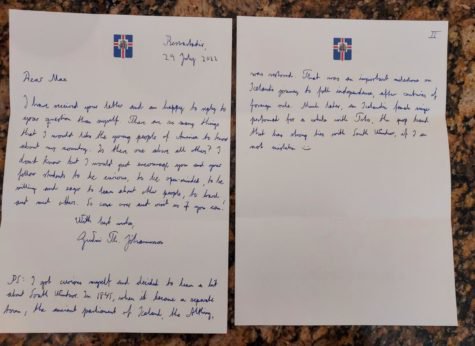 Bessastaðir,
29 July, 2022
Dear Max
I have received your letter and am happy to reply to
your question then myself. There are so many things
that I would like the young people of America to know
about my country. Is there one above all others? I
don't know but I would just encourage you and your
fellow students to be curious, to be open-minded, to be
willing and eager to learn about other people, to reach
out and meet others. So come over and visit us if you can!
With best wishes,
Guðni Th. Jóhannesson
PS: I got curious myself and decided to learn a bit
about South Windsor. In 1845, when it became a separate
town, the ancient parliament of Iceland, the Althing,
II
was restored. That was an important milestone on
Iceland's journey to full independence, after centuries of
foreign rule. Much later, an Icelandic female singer
performed for a while with Toto, the pop band
that has strong ties with South Windsor, if I am
not mistaken :-)